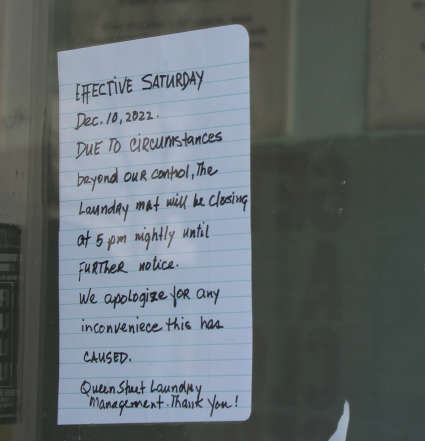 EFFECTIVE SATURDAY
Dec. 10, 2022.
DUE TO CIRCUMstances
beyond OUR control, The
Laundry mat will be closing
at 5 pm nightly until
FURTHER notice.
We apologize FOR any
inconveniece this has
CAUSED.
Queen Street Laundry
Management. Thank You!